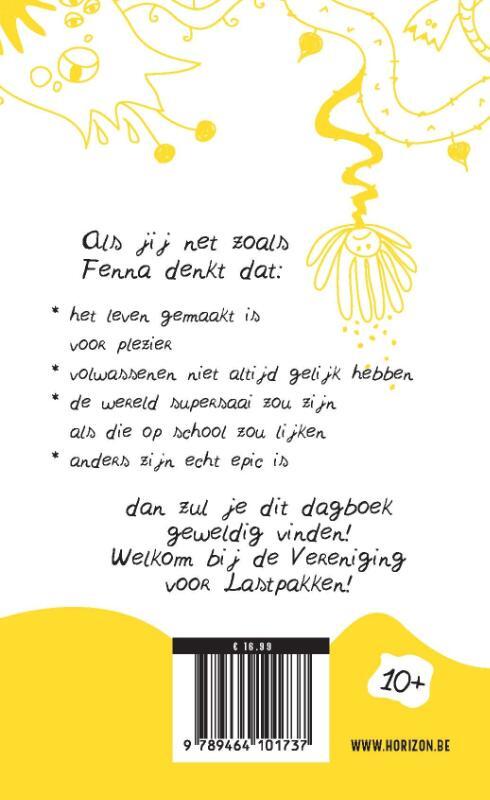 Als jij net zoals
Fenna denkt dat:
* het leven gemaakt is
voor plezier
* volwassenen niet altijd gelijk hebben
* de wereld supersaai zou zijn
als die op school zou lijken
* anders zijn echt epic is
dan zul je dit dagboek
geweldig vinden!
Welkom bij de Vereniging
voor Lastpakken!
€ 16,99
10+
9 789464 101737
WWW.HORIZON.BE